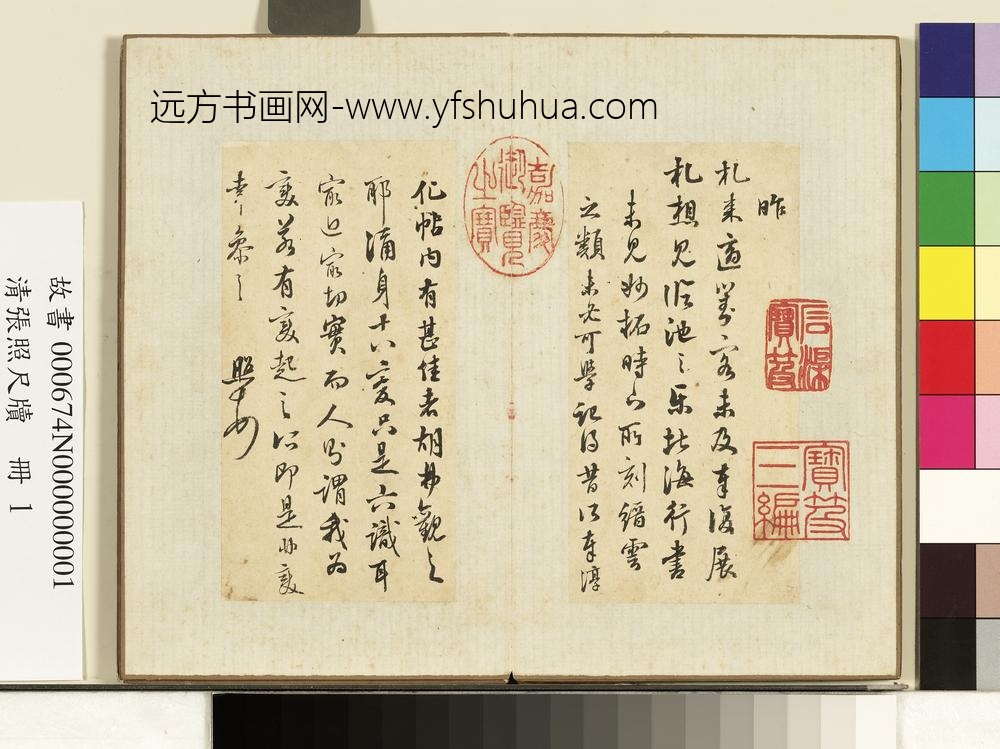 远方书画网-www.yfshuhua.com
昨
札来適對客未及奉復展
札想見临池之樂北海行書
未見妙拓時下所刻縉雲
之類未必可學記得昔以奉淳
化帖内有甚佳者胡弗觀之
耶滿身十八變只是六識耳
最近最切實而人則謂我为
變若有變起之所即是非變
幸参之
照
嘉慶
御覽
之寶
石渠
寶笈
寶笈
三編
故書 000674N000000001
清張照尺牘 冊 1